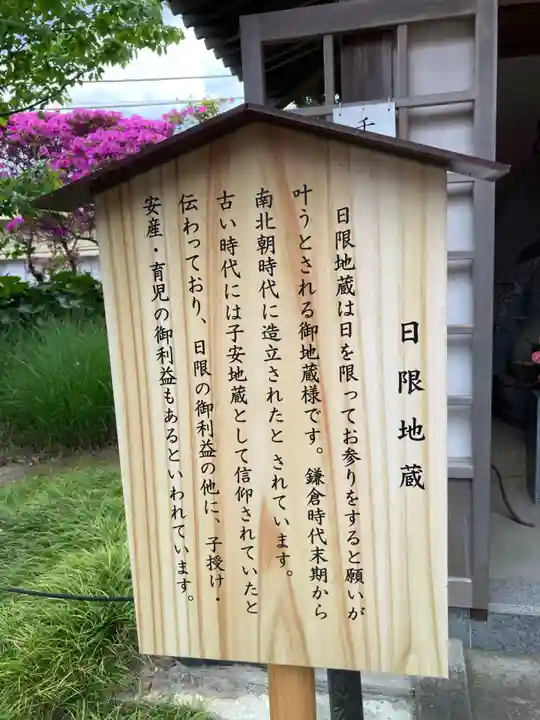 日限地蔵
日限地蔵は日を限ってお参りをすると願いが
叶うとされる御地蔵様です。鎌倉時代末期から
南北朝時代に造立されたと されています。
古い時代には子安地蔵として信仰されていたと
伝わっており、日限の御利益の他に、子授け・
安産・育児の御利益もあるといわれています。
千